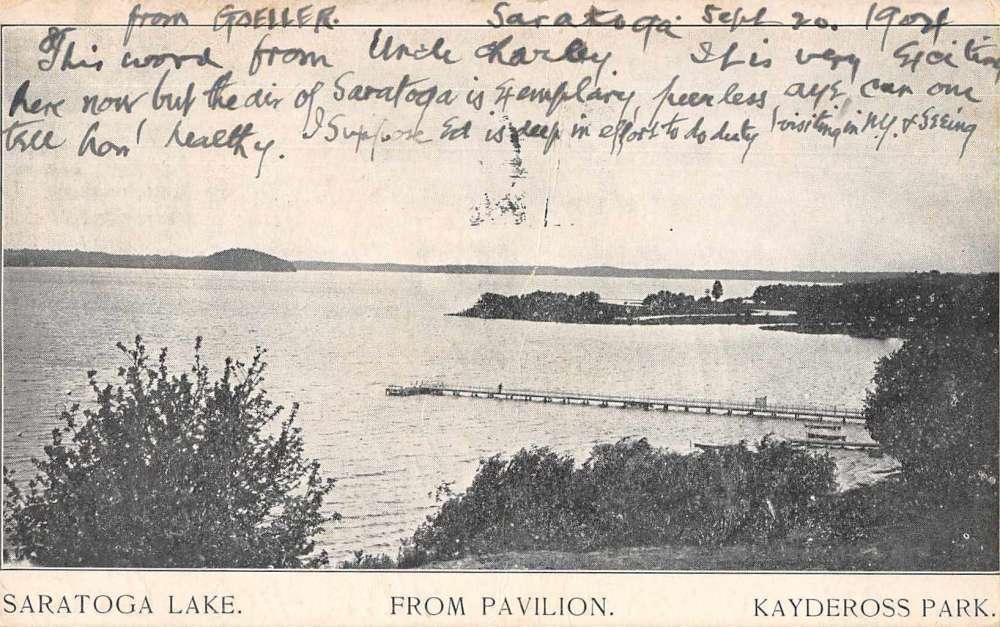 from GOELLER. Saratoga Sept 20. 1904
This word from Uncle Charley It is very Exciting
here now but the air of Saratoga is Exemplary, peerless aye, can one
tell how healthy. I Suppose Ed is deep in effort to do duty visiting in NY. & SEEing
SARATOGA LAKE. FROM PAVILION. KAYDEROSS PARK.